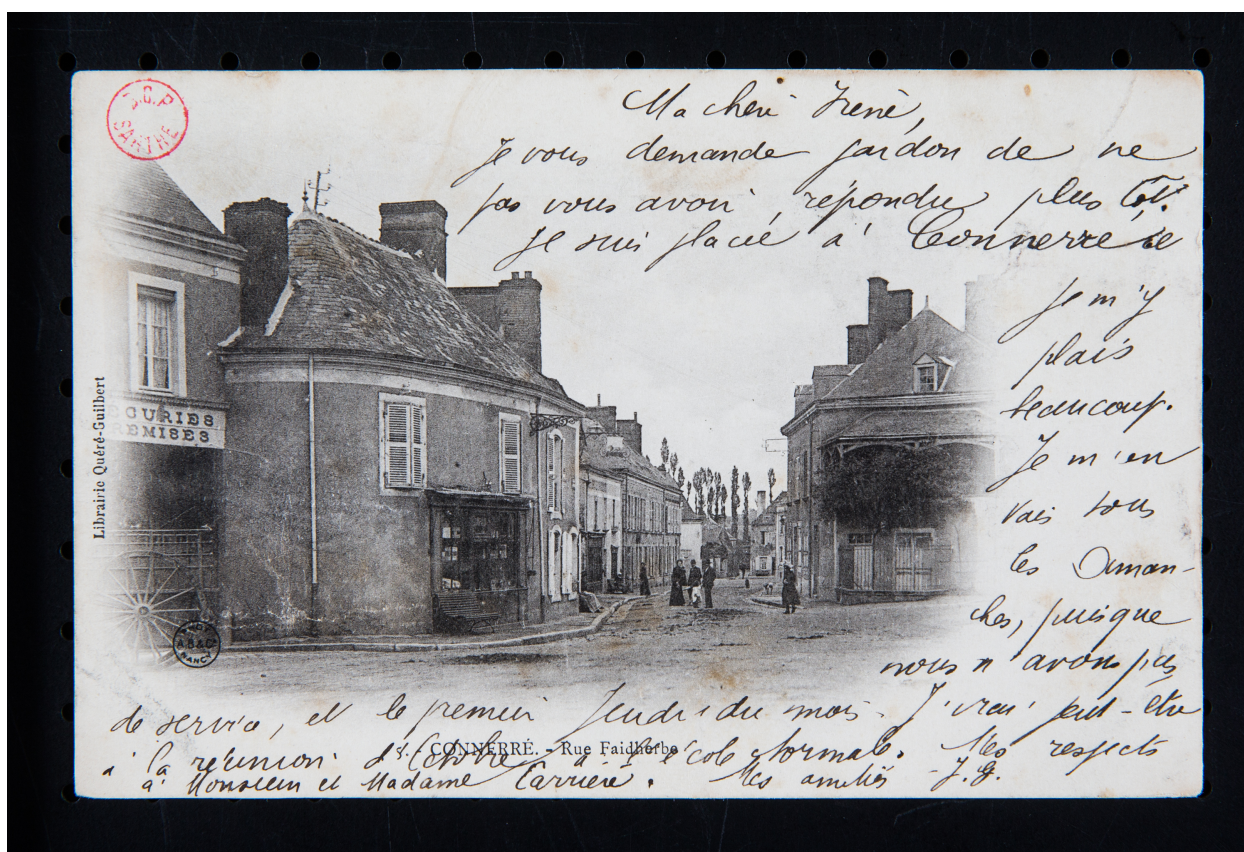 D.C.P.
SARTHE
Ma chère Irène,
Je vous demande pardon de ne
pas vous avoir, répondre plus tôt.
Je suis placée à Connerré
Je m'y
plais
beaucoup.
Je m'en
vais tous
les diman-
ches, puisque
nous n'avons pas
de service, et le premier Jeudi du mois. J'irai peut-être
à la réunion d'Octobre à l'école normale. Mes respects
à Monsieur et Madame Carrière. Mes amitiés J.G.
ECURIES
REMISES
Librairie Quéré-Guilbert
A.B.&C°
NANCY
8. - CONNERRÉ. - Rue Faidherbe